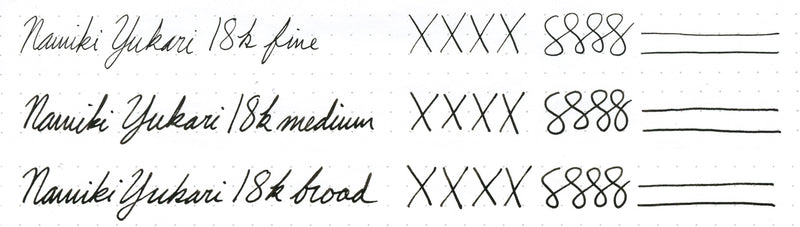 Namiki Yukari 18k fine XXXX 8888
Namiki Yukari 18k medium XXXX 8888
Namiki Yukari 18k broad XXXX 8888